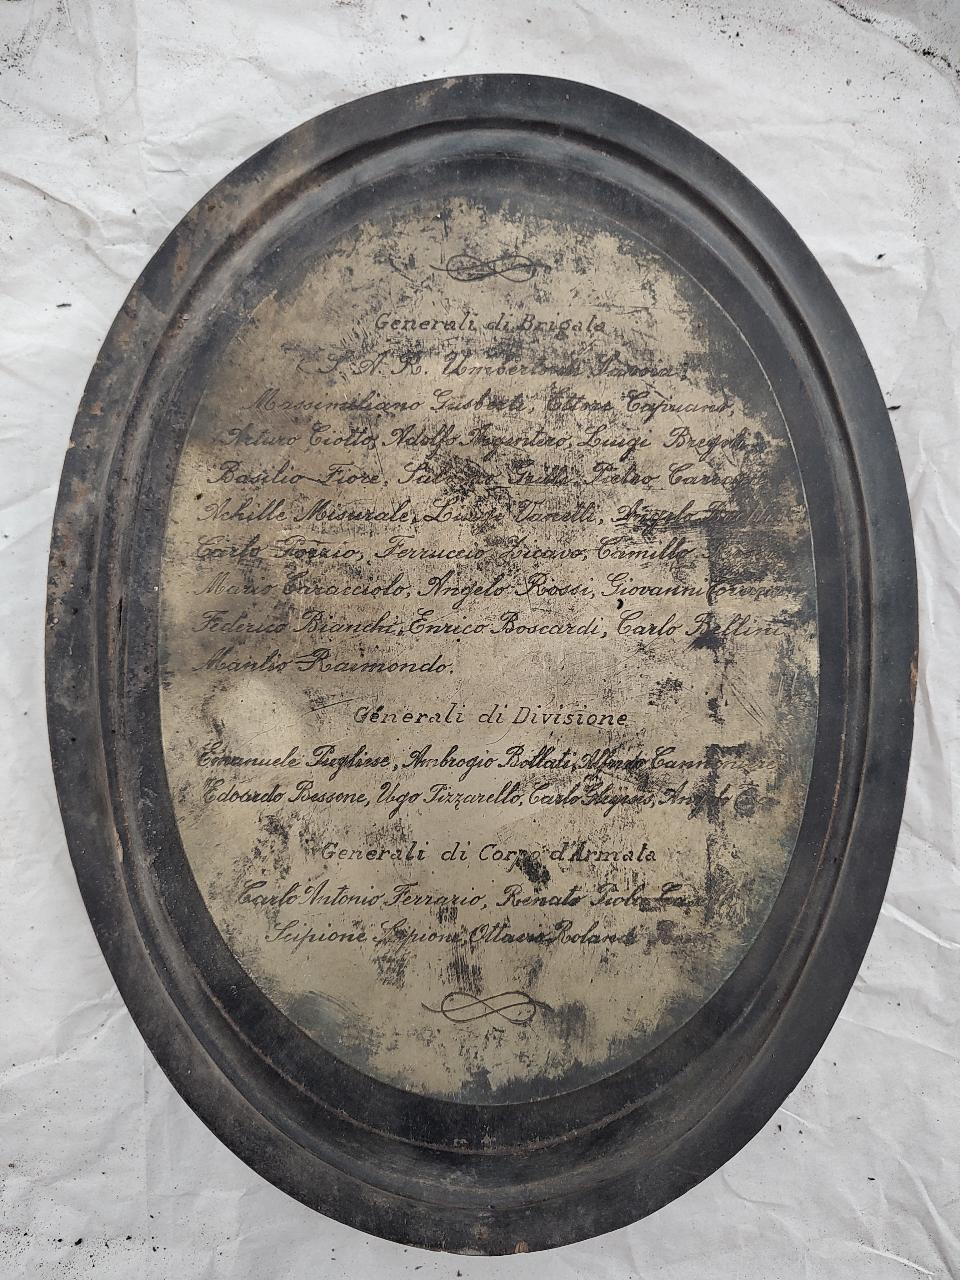 Generali di Brigata
S. A. R. Umberto di Savoia,
Massimiliano Gusberti, Ettore Capuano,
Arturo Ciotto, Adolfo Argentero, Luigi
Basilio Fiore, Pietro
Achille Misurale, Luigi Vanetti,
Carlo Pozzio, Ferruccio Licavo, Camillo
Mario Caracciolo, Angelo Rossi, Giovanni
Federico Bianchi, Enrico Boscardi, Carlo Bellini
Manlio Raimondo.
Generali di Divisione
Emanuele Pugliese, Ambrogio Bollati, Alfredo Cannoniere
Edoardo Bessone, Ugo Pizzarello, Carlo
Generali di Corpo d'Armata
Carlo Antonio Ferrario, Renato Piola
Scipione Scipioni, Ottavio